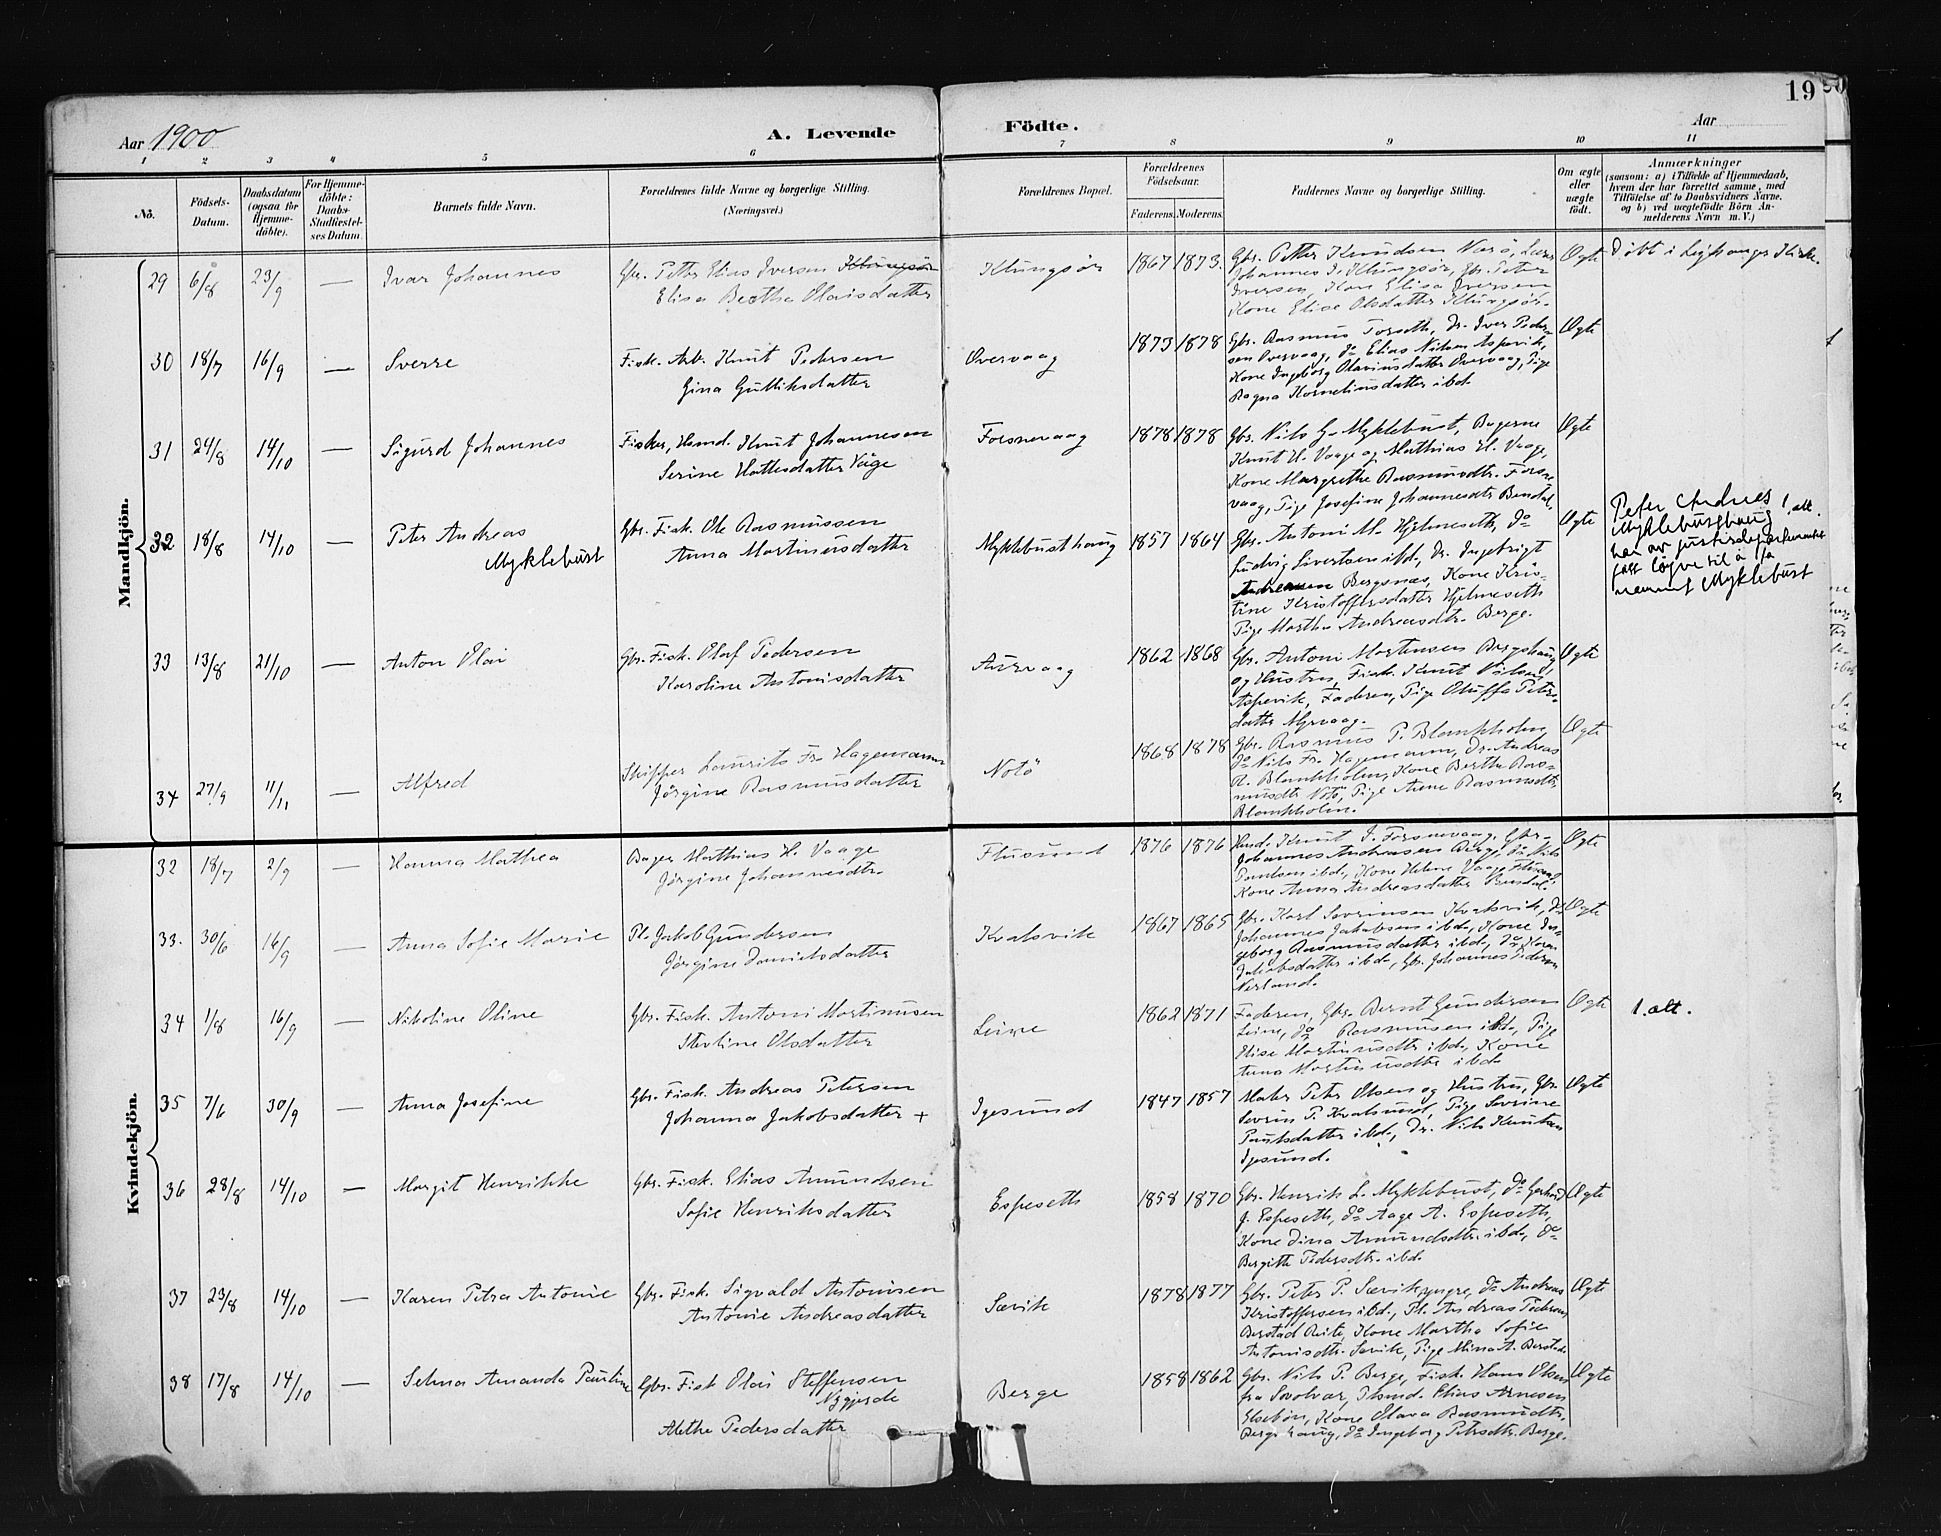 19
Aar 1900
A. Levende Födte.
Aar
1 2 3 4 5 6 7 8 9 10 11
Nô. Födsels-Datum. Daabsdatum (ogsaa for Hjemme-döbte). For Hjemme-döbte: Daabs-Stadfæstel-ses Datum. Barnets fulde Navn. Forældrenes fulde Navne og borgerlige Stilling. (Næringsvei.) Forældrenes Bopæl. Forældrenes Födselsaar. Faderens. Moderens. Faddernes Navne og borgerlige Stilling. Om ægte eller uægte födt. Anmærkninger
(saasom: a) i Tilfælde af Hjemmedaab,
hvem der har forrettet samme, med
Tilföielse af to Daabsvidners Navne,
og b) ved uægtefödte Börn An-
melderens Navn m. V.)
Mandkjön.
29 6/8 23/9 — Ivar Johannes Gbr. Petter Elias Iversen Klungsör
Elisa Berthe Olaisdatter
Klungsör 1867 1873. Gbr. Petter Knudsen Nærö,
Johannes I. Klungsör, Gbr. Peter
Iversen, Kone Elisa Iversen
Kone Elise Olsdatter Klungsör.
Ægte Döbt i Leikanger Kirke.
30 18/7 16/9 — Sverre Fisk. Arb. Knut Pedersen
Gina Gulliksdatter
Overvaag 1873 1878 Gbr. Rasmus Forseth, Dr. Iver Peder-
sen Overvaag, do Elias Nilsen Aspevik,
Kone Ingeborg Olaviusdatter Overvaag, Pige
Ragna Korneliusdatter ibd.
Ægte
31 24/8 14/10 — Sigurd Johannes Fisker, Hsmd. Knut Johannesen
Serine Hattesdatter Våge
Forsnevaag 1878 1878 Gbr. Nils G. Myklebust, Bagerne
Knut H. Vaage og Mathias H. Vaage,
Kone Margrethe Rasmusdtr. Forsne
vaag, Pige Josefine Johannesdtr Bendal,
Ægte
32 18/8 14/10 — Peter Andreas
Myklebust
Gbr. Fisk. Ole Rasmussen
Anna Martinusdatter
Myklebusthaug 1857 1864 Gbr. Antoni M. Hjelmeseth, do
Ludvig Sivertsen ibd., Dr. Ingebrigt
Andreassen Bergsnes, Kone Kris-
tine Kristoffersdatter Hjelmeseth
Pige Marthe Andreasdtr. Berge.
Ægte Peter Andreas
Myklebusthaug 1. alt.
har av justisdepartementet
fått löyve til å ta
namnet Myklebust
33 13/8 21/10 — Anton Olai Gbr. Fisk. Olaf Pedersen
Karoline Antonisdatter
Aurvaag 1862 1868 Gbr. Antoni Mortensen Bergshaug
og Hustru, Fisk. Knut Nilsen
Aspevik, Faderen, Pige Oluffa Peters-
datter Myrvaag.
Ægte
34 27/9 11/11 — Alfred Skipper Laurits Fr. Hagemann
Jörgine Rasmusdatter
Notö 1868 1878 Gbr. Rasmus P. Blankholm,
do Nils Fr. Hagemann, Dr. Andreas
R. Blankholm, Kone Berthe Ras-
musdtr Notö, Pige Anne Rasmusdtr.
Blankholm.
Ægte
Kvindekjön.
32 18/7 2/9 — Hanna Mathea Bager Mathias H. Vaage
Jörgine Johannesdtr.
Flusund 1876 1876 Hmd. Knut J. Forsnevaag, Gbr.
Johannes Andreasen Berge, do Nils
Paulsen ibd., Kone Helene Vaage Flusund,
Kone Anna Andreasdatter Bendal.
Ægte
33. 30/6 16/9 — Anna Sofie Marie Pl. Jakob Gundersen
Jörgine Danielsdatter
Kvalsvik 1867 1865 Gbr. Karl Severinsen Kvalsvik, do
Johannes Jakobsen ibd., Kone In-
geborg Rasmusdatter ibd., do Karen
Jakobsdatter ibd., Gbr. Johannes Pedersen
Nerland.
Ægte
34 1/8 16/9 — Nikoline Oline Gbr. Fisk. Antoni Martinusen
Steoline Olsdatter
Leine 1862 1871 Faderen, Gbr. Bernt Gundersen
Leine, do Rasmusen ibd., Pige
Elise Martinusdtr ibd., Kone
Anna Martinusdtr ibd.
Ægte 1. alt.
35 7/6 30/9 — Anna Josefine Gbr. Fisk. Andreas Petersen
Johanna Jakobsdatter +
Igesund 1847 1857 Maler Peter Olsen og Hustru, Gbr.
Severin P. Kvalsund, Pige Severine
Paulsdatter ibd., Dr. Nils Knutsen
Igesund.
Ægte
36 28/8 14/10 — Margit Henrikke Gbr. Fisk. Elias Amundsen
Sofie Henriksdatter
Espeseth 1858 1870 Gbr. Henrik L. Myklebust, do Gerhard
J. Espeseth, do Aage A. Espeseth,
Kone Dina Amundsdtr. ibd., do
Bergitte Pedersdtr. ibd.
Ægte
37 23/8 14/10 — Karen Petra Antonie Gbr. Fisk. Sigvald Antonisen
Antonie Andreasdatter
Sævik 1878 1877 Gbr. Peter P. Sævik yngre, do Andreas
Kristoffersen ibd., Pl. Andreas Pedersen
Berstad Reite, Kone Martha Sofie
Antonisdtr. Sævik, Pige Mina A. Berstad.
Ægte
38 17/8 14/10 — Selma Amanda Pauline Gbr. Fisk Olai Steffensen
Nygjerde
Alethe Pedersdatter
Berge 1858 1862 Gbr. Nils P. Berge, Fisk. Hans Olsen
fra Svolvær, Hsmd. Elias Arnesen
Elsebön, Kone Olava Rasmusdtr.
Bergshaug, do Ingeborg Petersdtr. Berge.
Ægte